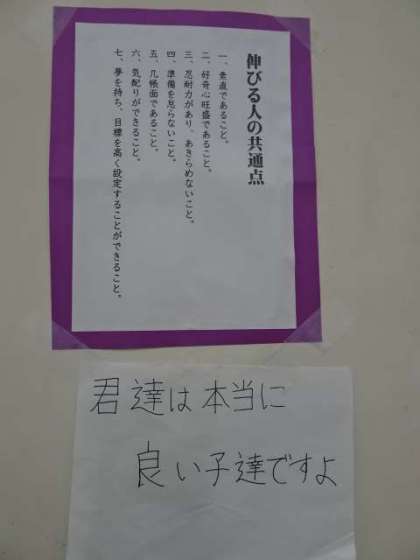 伸びる人の共通点
一、素直であること。
二、好奇心旺盛であること。
三、忍耐力があり、あきらめないこと。
四、準備を怠らないこと。
五、几帳面であること。
六、気配りができること。
七、夢を持ち、目標を高く設定することができること。
君達は本当に
良い子達ですよ